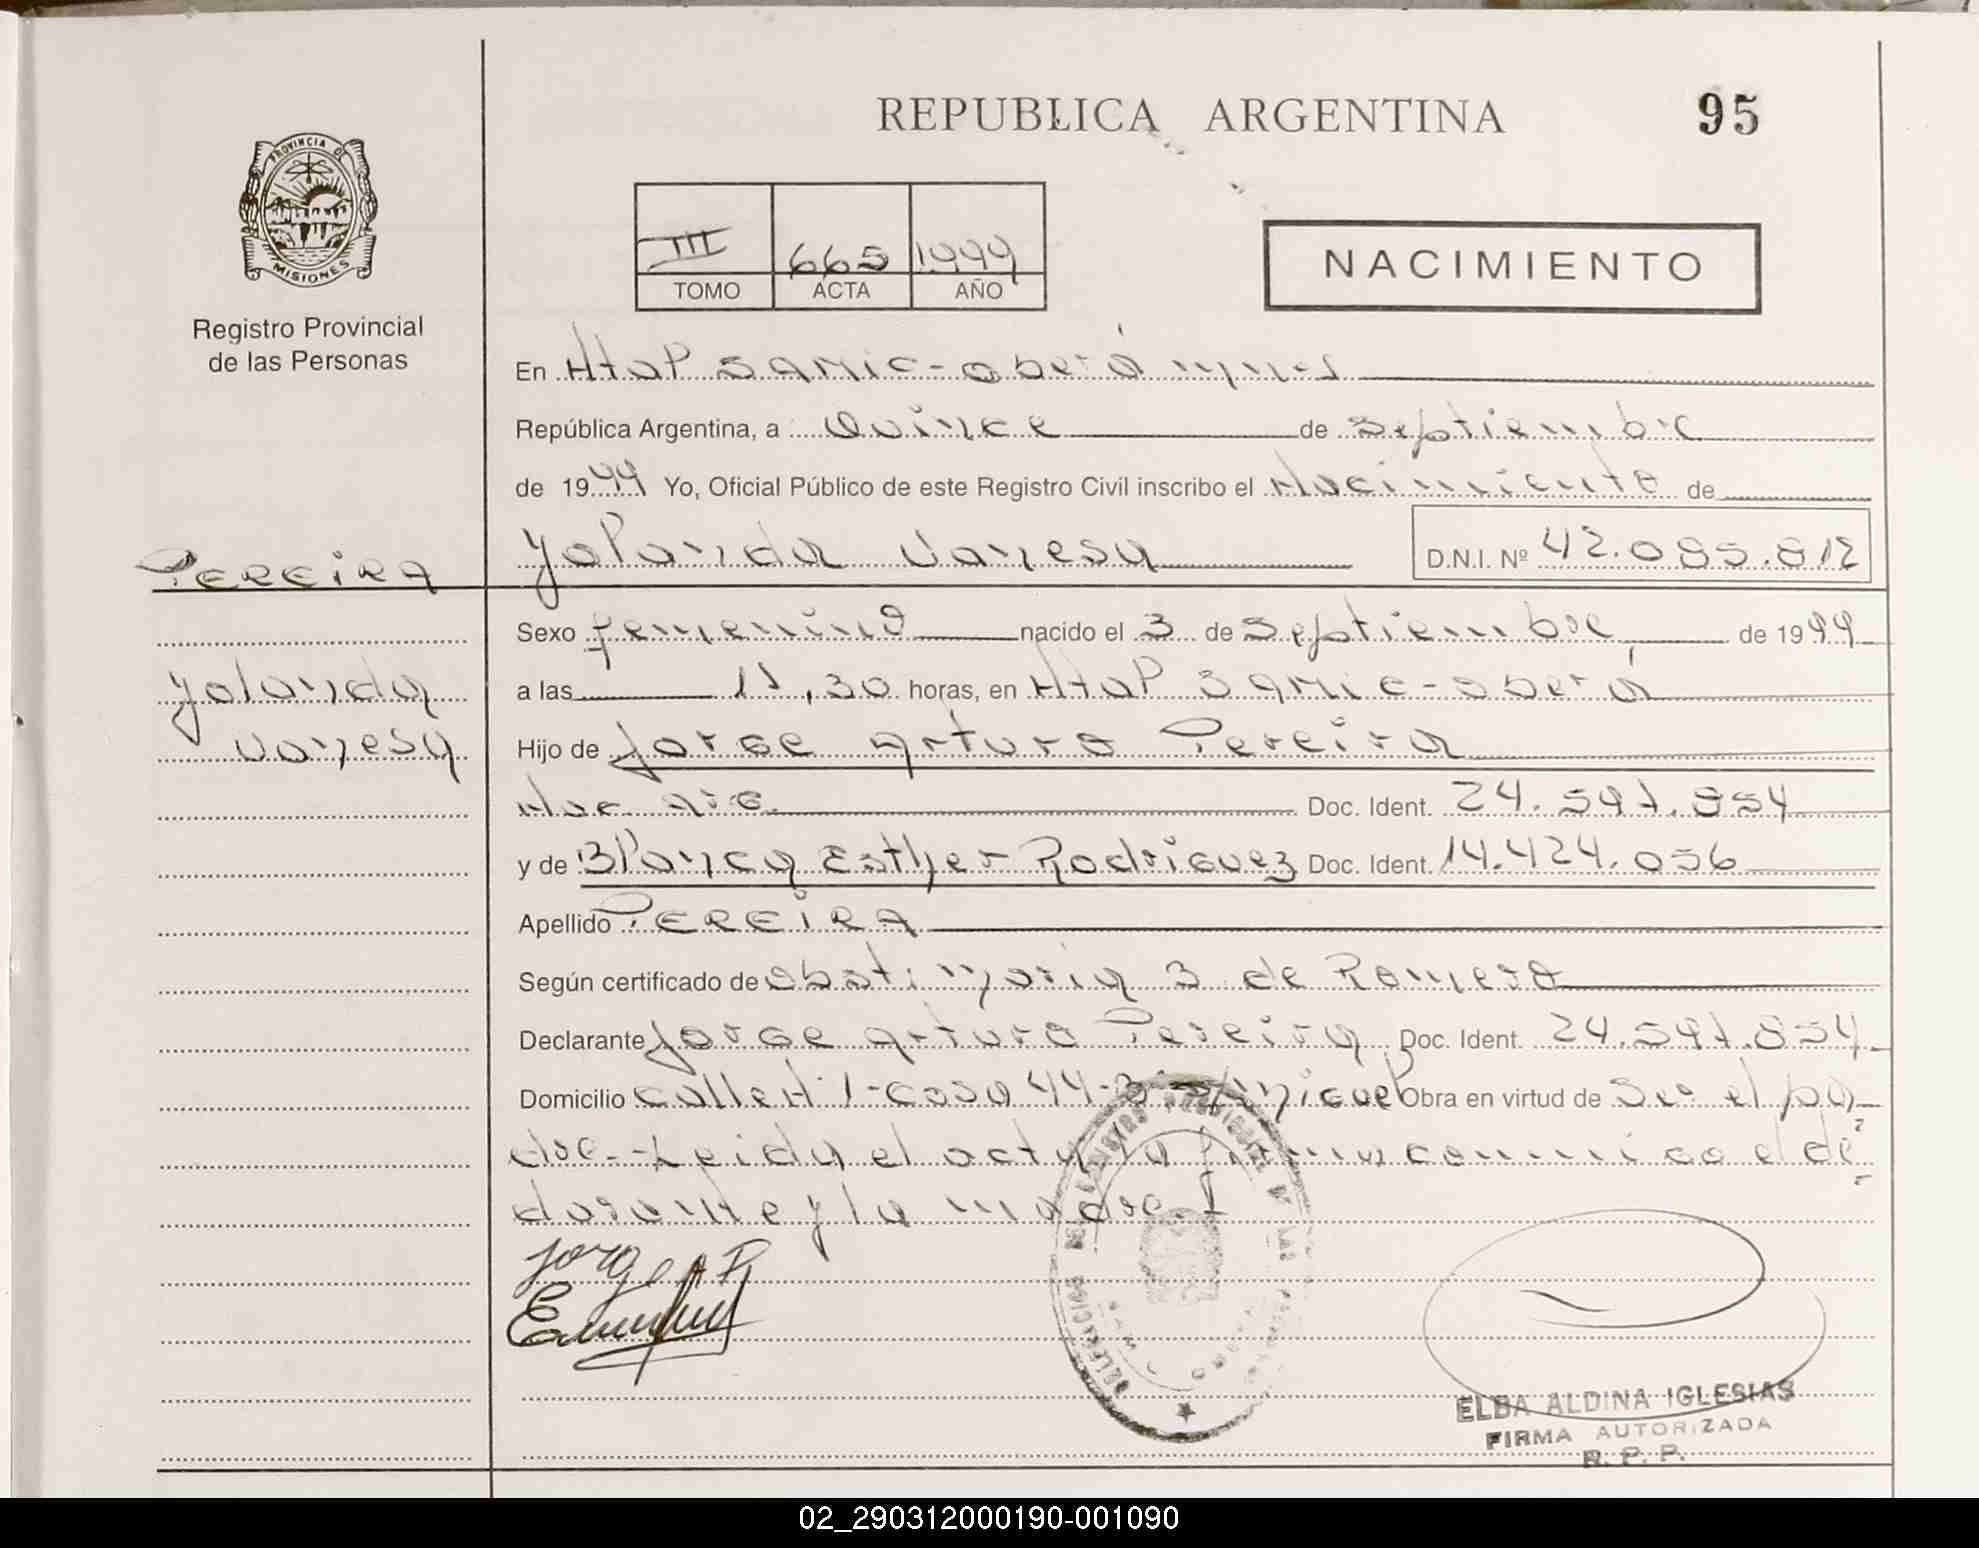 REPUBLICA ARGENTINA
95
PROVINCIA DE
MISIONES
Registro Provincial
de las Personas
III 665 1999
TOMO ACTA AÑO
NACIMIENTO
En Htal SAMIC-Oberá Mnes
República Argentina, a Quince de Septiembre
de 1999 Yo, Oficial Público de este Registro Civil inscribo el Nacimiento de
PEREIRA
Yolanda Vanesa
D.N.I. Nº 42.085.812
Sexo femenino nacido el 3 de Septiembre de 1999
Yolanda
a las 11,30 horas, en Htal SAMIC-Oberá
Vanesa
Hijo de Jorge Arturo Pereira
Nac. Arg. Doc. Ident. 24.597.854
y de Blanca Esther Rodriguez Doc. Ident. 14.424.056
Apellido PEREIRA
Según certificado de Obst. Maria S de Romero
Declarante Jorge Arturo Pereira Doc. Ident. 24.597.854
Domicilio Calle N° 1-Casa 44-B° Sn Miguel Obra en virtud de Ser el pa
dre.-Leida el acta la firman conmigo el de
clarante y la madre.
Jorge A P
DELEGACION DEL REGISTRO PROVINCIAL DE LAS PERSONAS
ELBA ALDINA IGLESIAS
FIRMA AUTORIZADA
R. P. P.
02_290312000190-001090